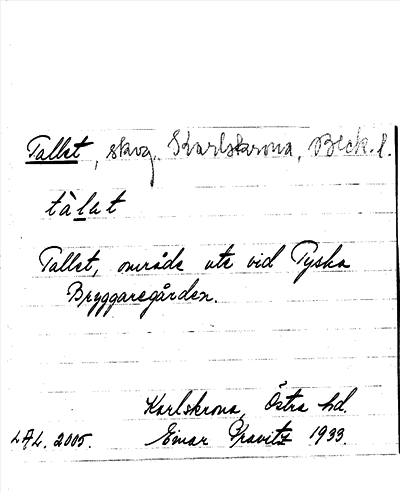 Tallet, skog. Karlskrona, Bleck. l.
tàlat
Tallet, område ute vid Tyska
Bryggaregården.
Karlskrona, Östra hd.
LAL. 2005. Einar Gravitz 1933.